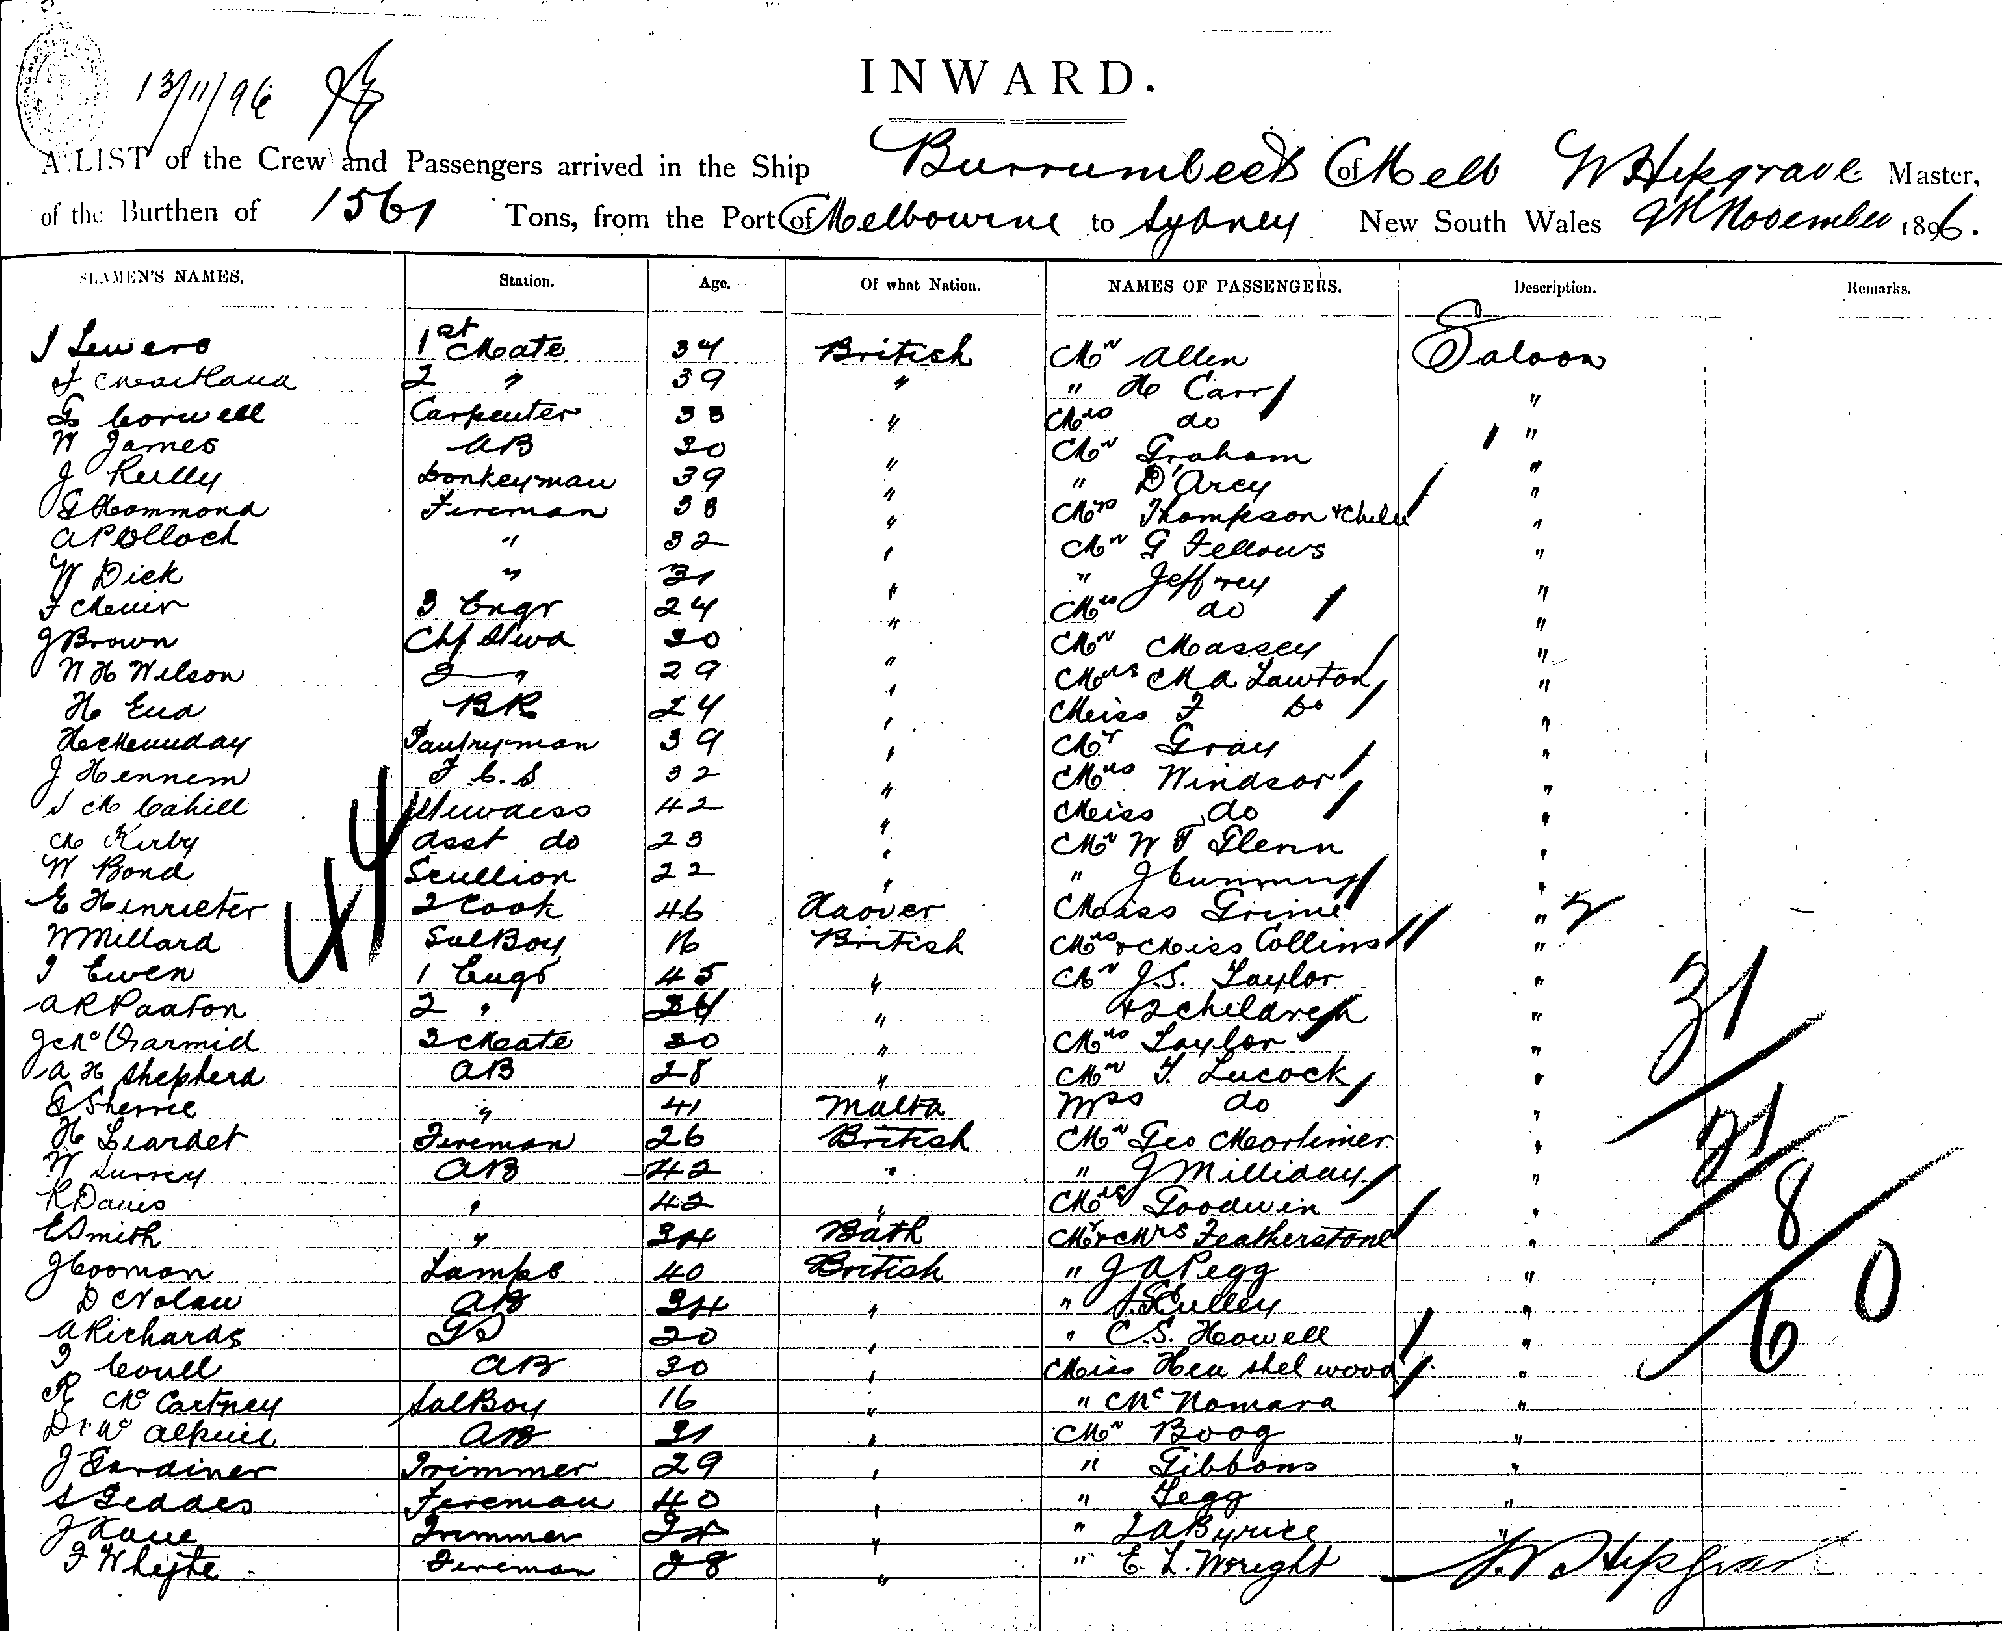 13/11/96
INWARD.
A LIST of the Crew and Passengers arrived in the Ship Burrumbeet of Melb W Hipgrave Master,
of the Burthen of 1561 Tons, from the Port of Melbourne to Sydney New South Wales 9th November 1896.
SEAMEN'S NAMES. Station. Age. Of what Nation. NAMES OF PASSENGERS. Description. Remarks.
J Lewers 1st Mate 34 British Mr Allen Saloon
F Maitland 2 " 39 " " H Carr "
G Corwell Carpenter 33 " Mrs do "
W James AB 30 " Mr Graham "
J Reilly Donkeyman 39 " " D'Arcy "
G Hammond Fireman 38 " Mrs Thompson + Child "
A Pollock " 32 " Mr G Fellows "
W Dick " 31 " " Jeffrey "
F Meuir 3 Engr 24 " Mrs do "
J Brown Chf Stwd 30 " Mr Massey "
W H Wilson 2 " 29 " Mrs M A Lawton "
H Eua BR 24 " Miss F Do "
H Munday Pantryman 39 " Mr Gray "
J Hennem F.C.S 32 " Mrs Windsor "
S M Cahill Stuwdess 42 " Miss do "
M Kirby Asst do 23 " Mr W T Glenn "
W Bond Scullion 22 " " J Cumming "
E Hinrieter 2 Cook 46 Haover Miss Grime "
W Millard SalBoy 16 British Mrs + Miss Collins "
J Ewen 1 Engr 45 " Mr J.S. Taylor "
A R Paaton 2 " 34 " + 2 children "
J McDiarmid 3 Mate 30 " Mrs Taylor "
A H Shepherd AB 28 " Mr T. Lucock "
Sherrie " 41 Malta Mrs do "
H Liardet Fireman 26 British Mr Geo Mortimer "
W Surrey AB 42 " " J Milliday "
R Davis " 42 " Mrs Goodwin "
C Smith " 34 Bath Mr + Mrs Featherstone "
J Cooman Lamps 40 British " J A Pegg "
D Nolan AB 34 " " Culley "
A Richards GS 20 " " C.S. Howell "
J Coull AB 30 " Miss Heushelwood "
R McCartney SalBoy 16 " " McNamara "
D Mc Alpine AB 31 " Mr Boog "
J Gardiner Trimmer 29 " " Gibbons "
S Geddes Fireman 40 " " Tegg "
J Kane Trimmer " " J A Byrice "
F Whyte Fireman 28 " " E. L. Wright W Hipgrave
44
31
21
8
60